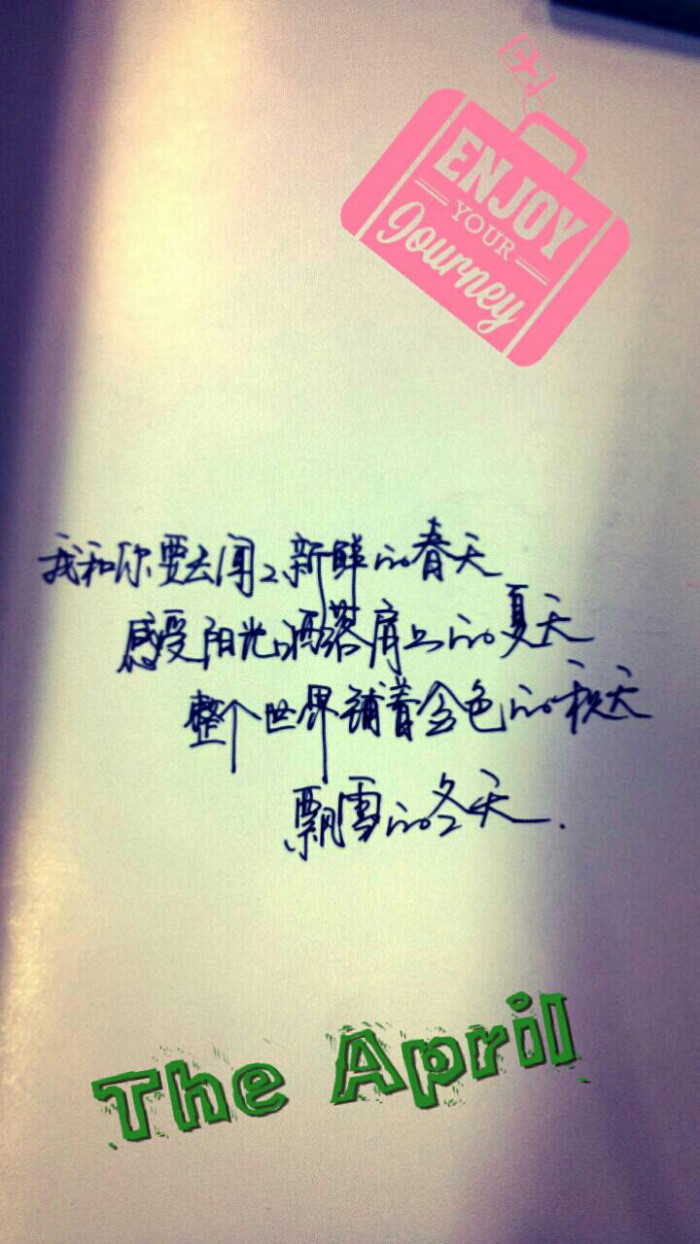 ENJOY
YOUR
Journey
我和你要去闻闻新鲜的春天
感受阳光洒落肩上的夏天
整个世界铺着金色的秋天
飘雪的冬天.
The April